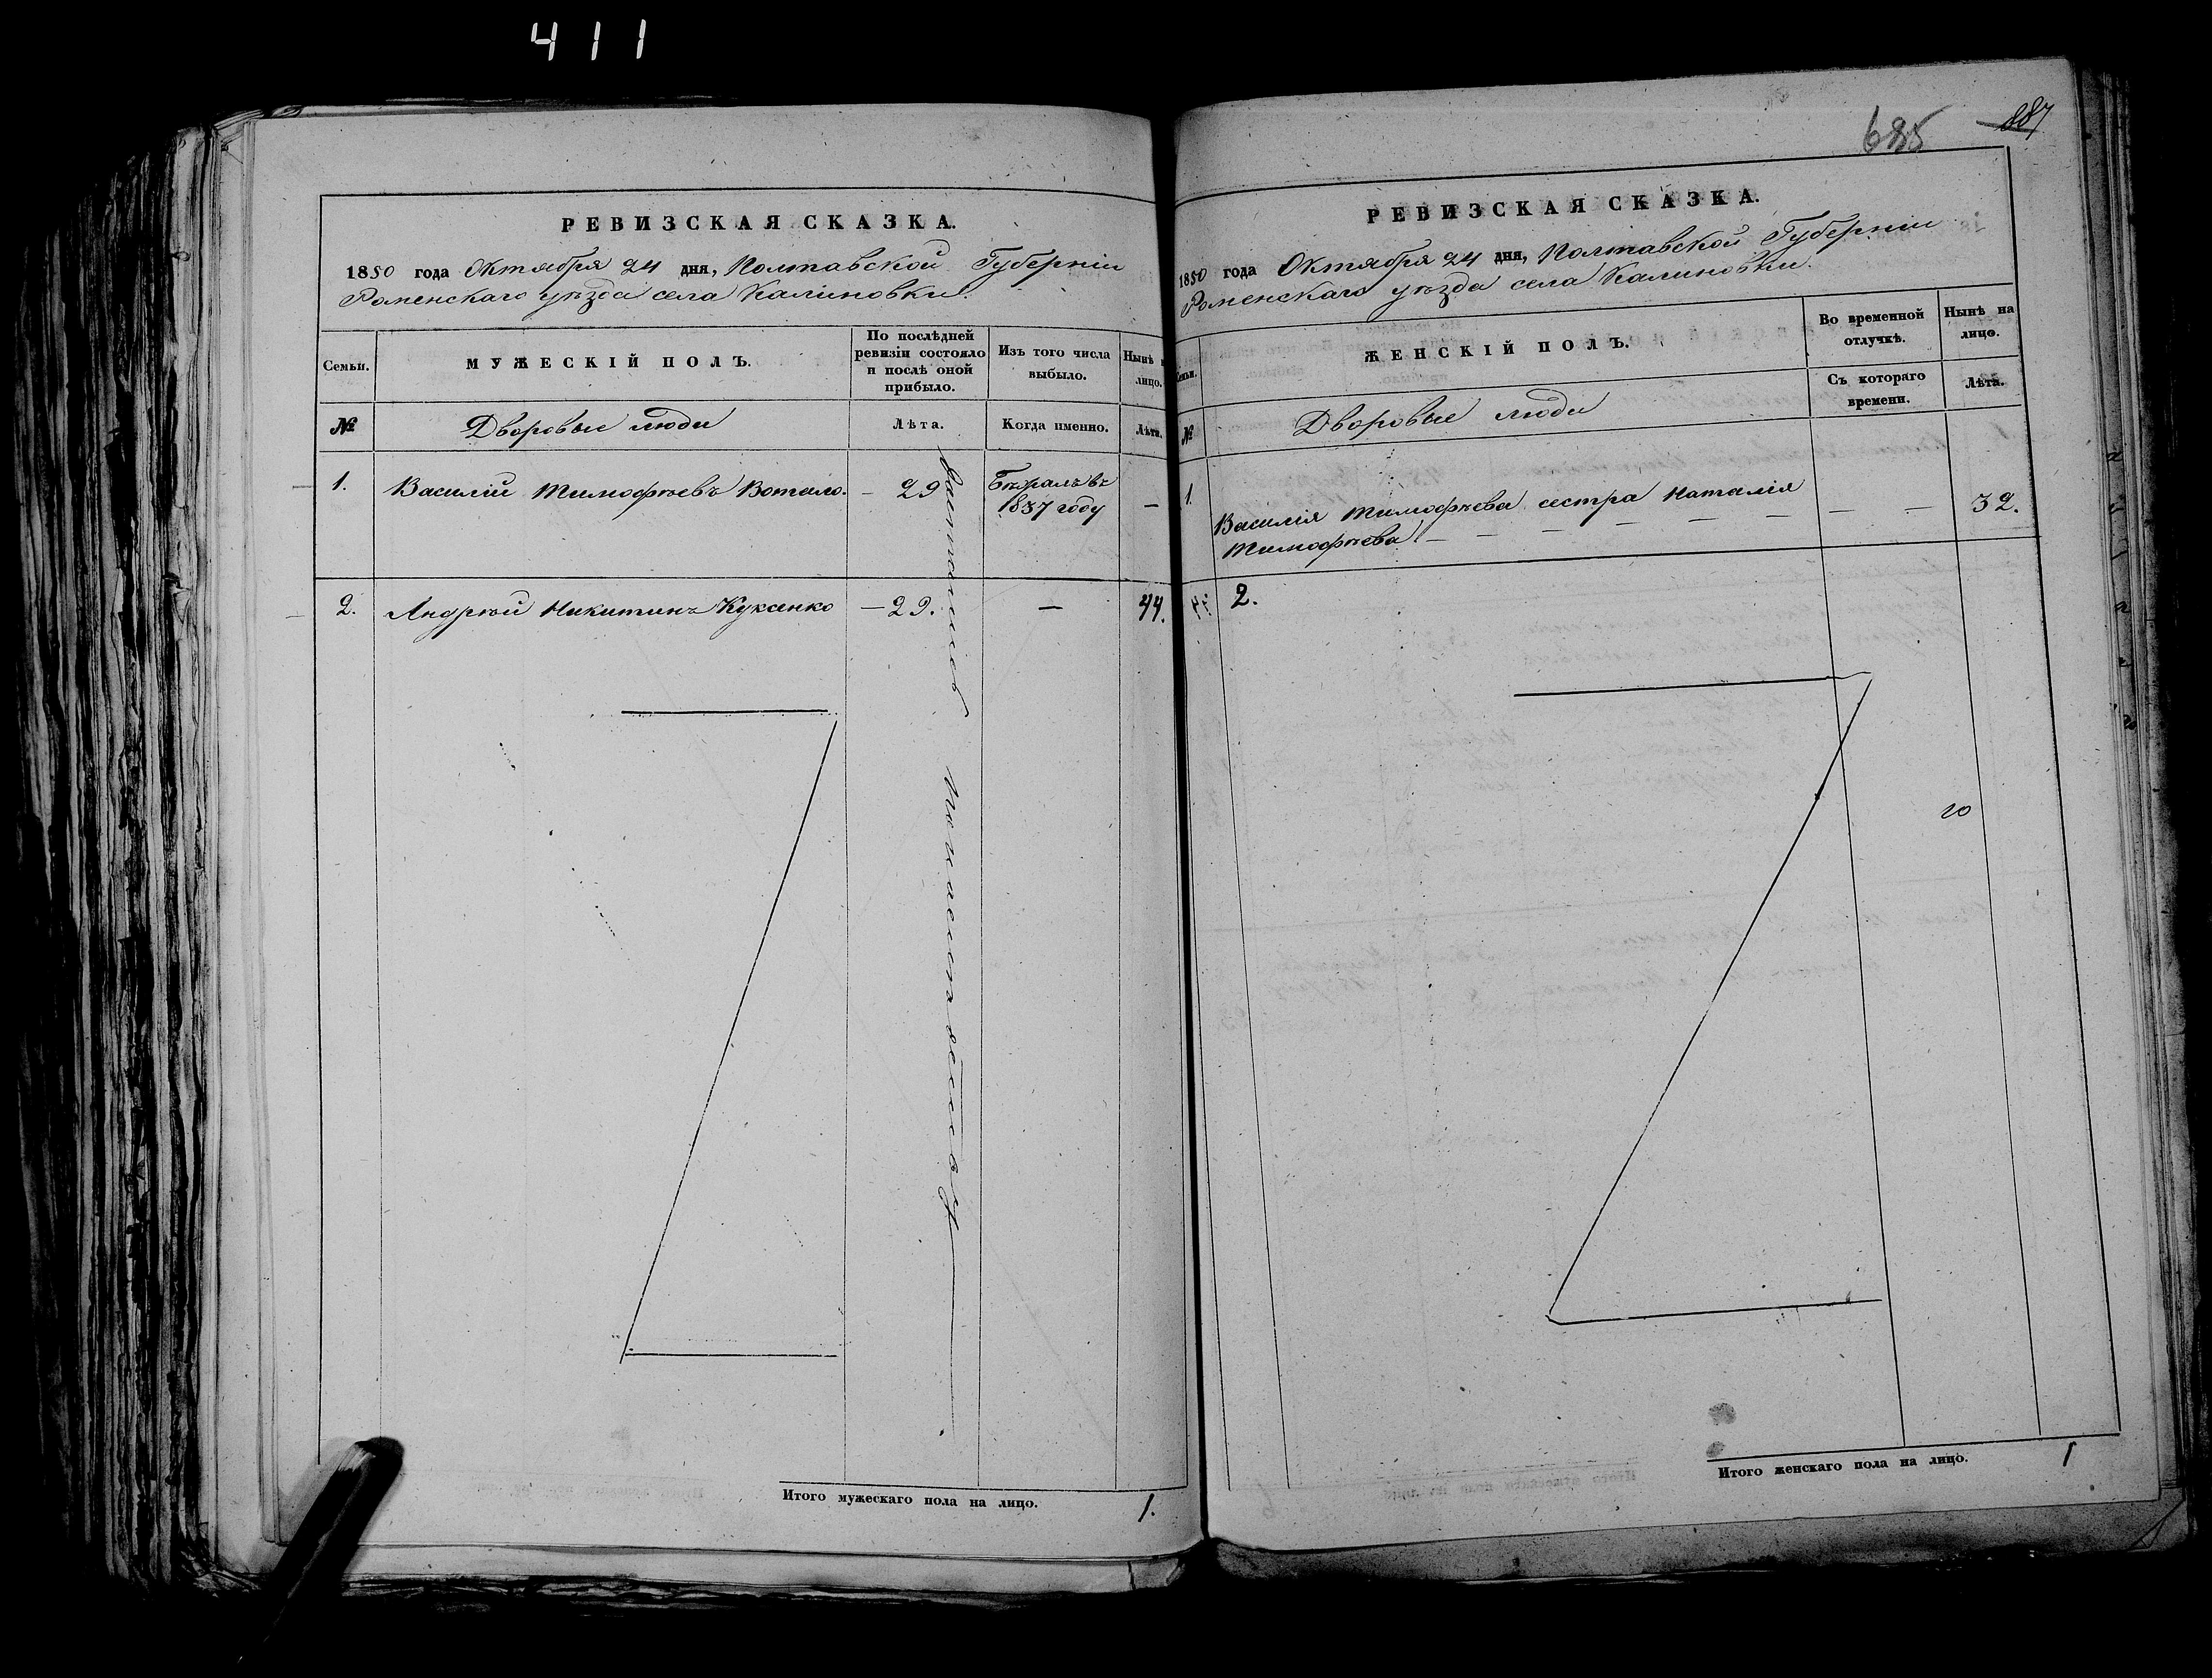 411
РЕВИЗСКАЯ СКАЗКА.
1850 года Октября 24 дня, Полтавской Губерніи
Роменскаго уѣзда села Калиновки.
Семьи.
МУЖЕСКІЙ ПОЛЪ.
По послѣдней
ревизіи состояло
и послѣ оной
прибыло.
Изъ того числа
выбыло.
Нынѣ
лицо.
№
Дворовые люди
Лѣта.
Когда именно.
Лѣта.
1.
Василій Тимофѣевъ
— 29
въ
1837 году
—
2.
Андрѣй Никитинъ Куксенко
— 29.
—
44.
Итого мужескаго пола на лицо.
1.
685
887
РЕВИЗСКАЯ СКАЗКА.
1850 года Октября 24 дня, Полтавской Губерніи
Роменскаго уѣзда села Калиновки.
Семьи.
ЖЕНСКІЙ ПОЛЪ.
Во временной
отлучкѣ.
Нынѣ на
лицо.
№
Дворовые люди
Съ котораго
времени.
Лѣта.
1.
Василія Тимофѣева сестра Наталія
Тимофѣева
32.
2.
го
Итого женскаго пола на лицо.
1